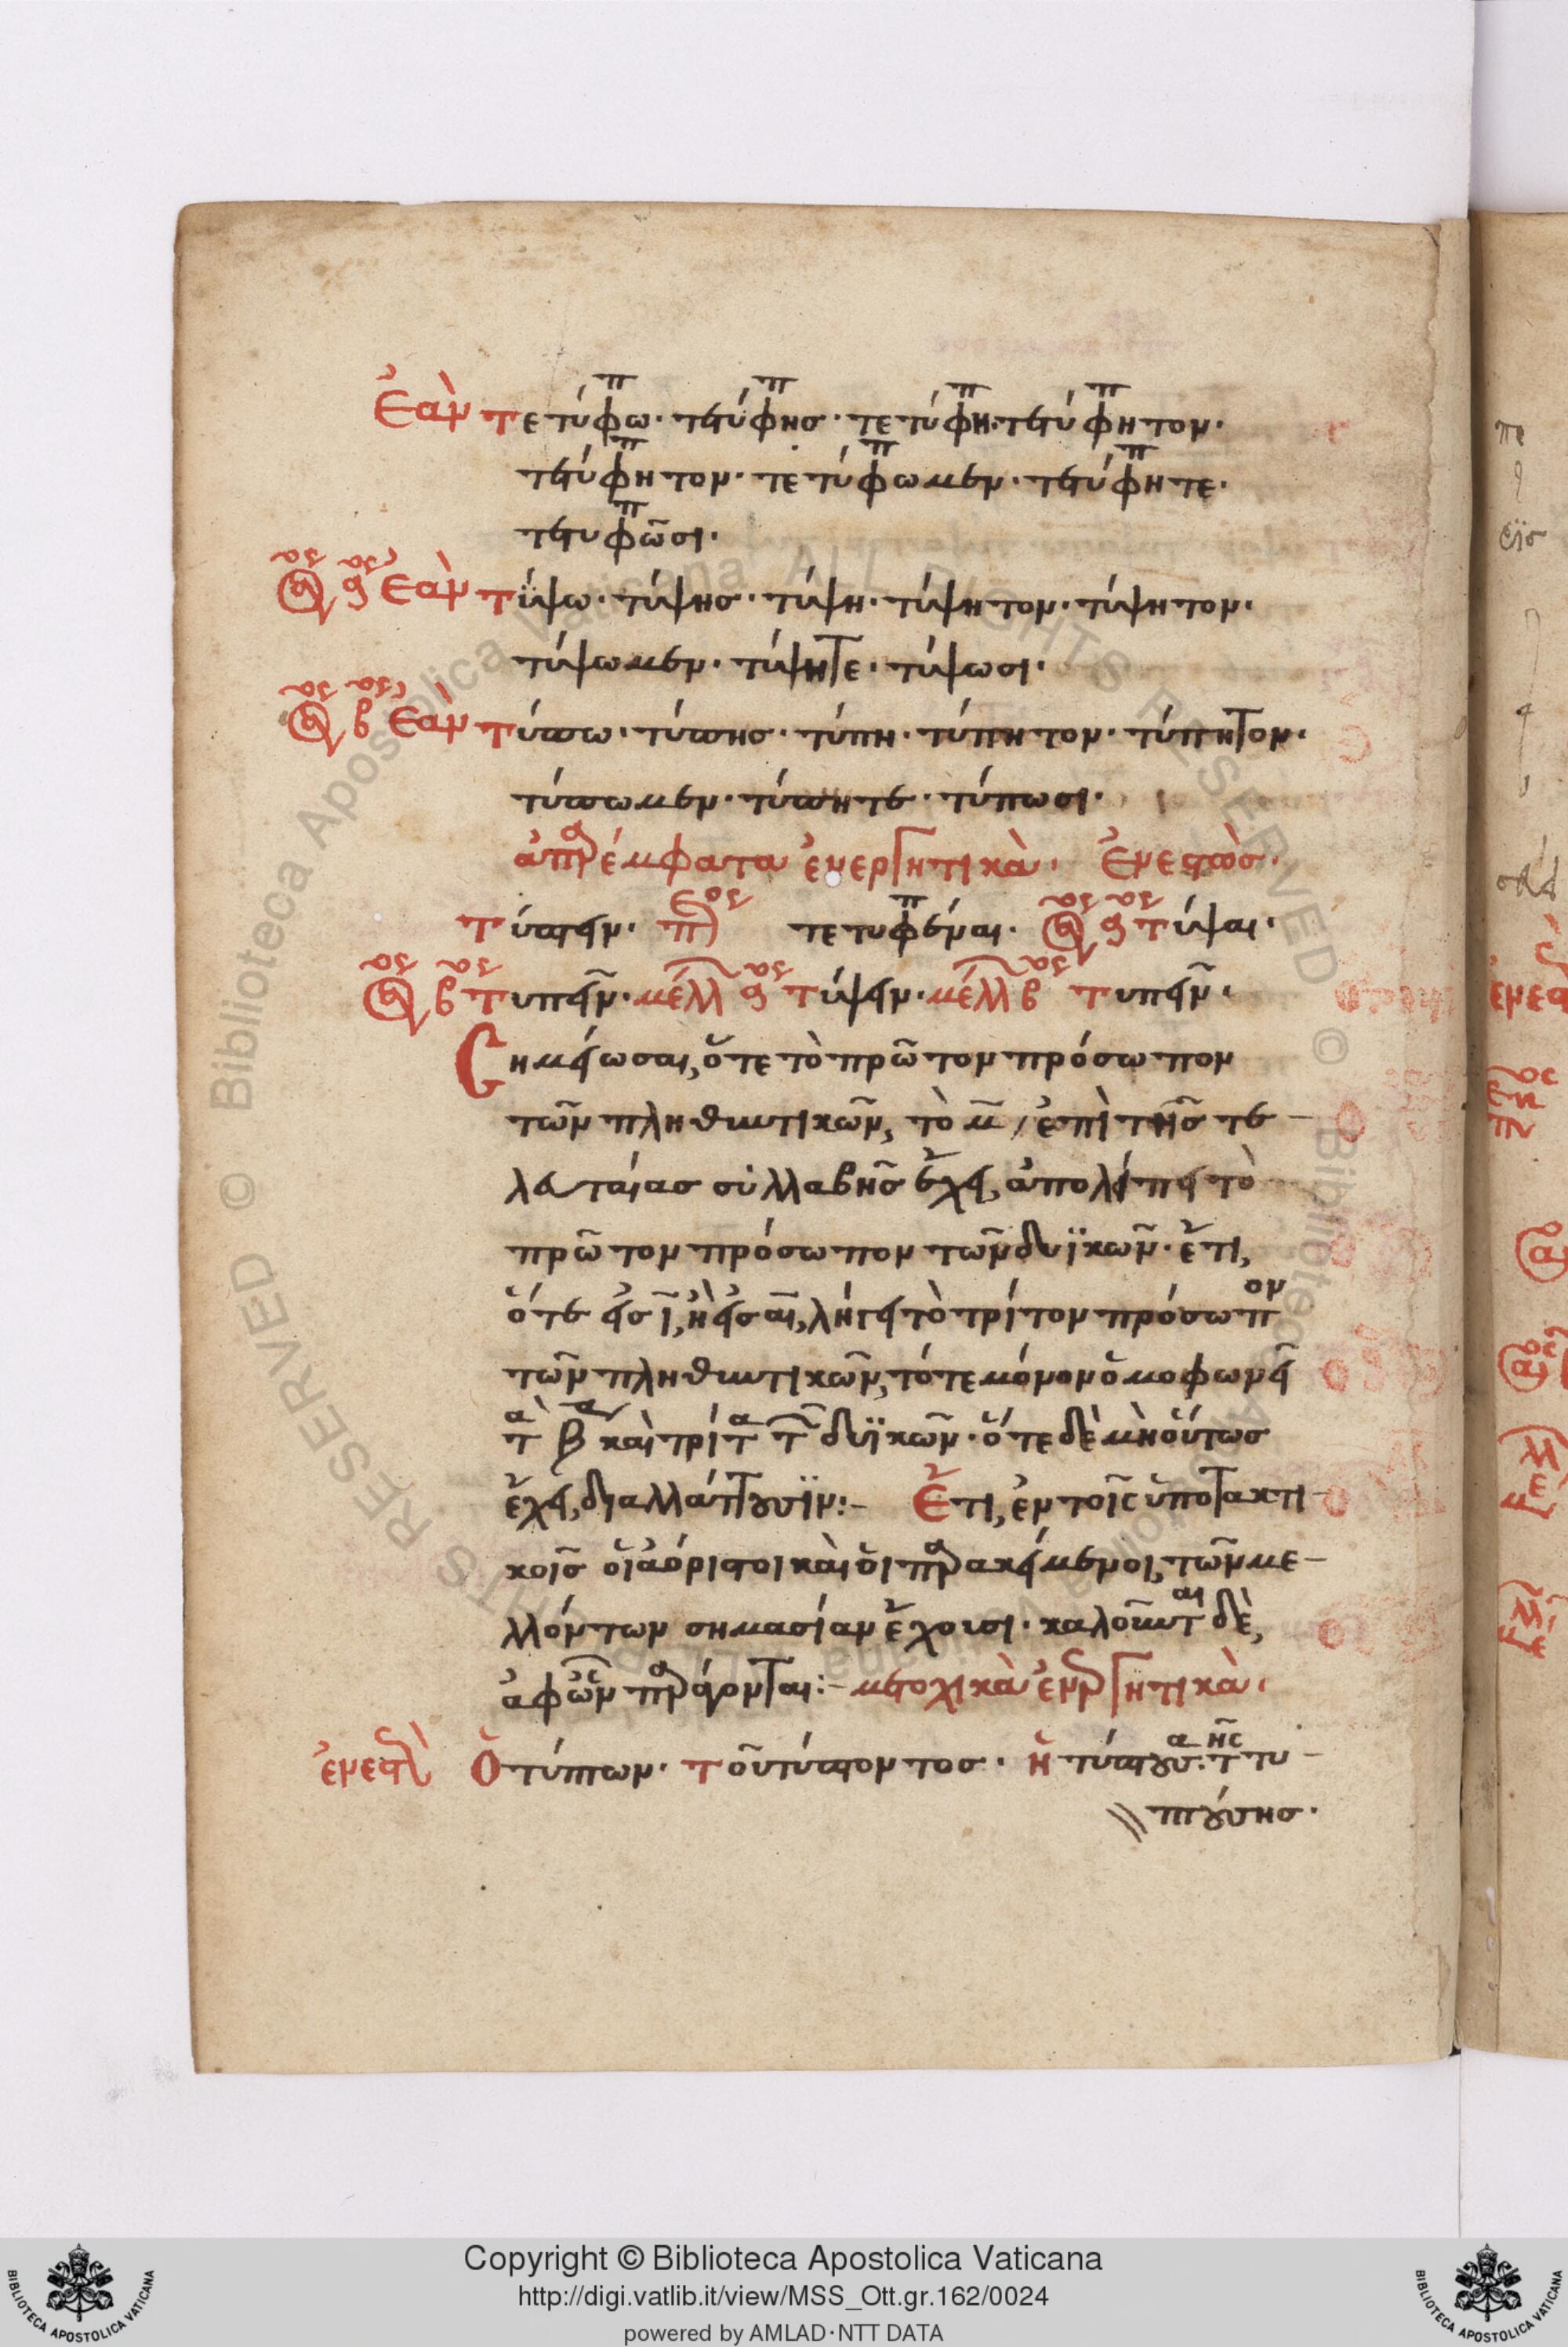 ἐὰν τετύφω. τετύφης. τετύφη. τετύφητον.
τετύφητον. τετύφωμεν. τετύφητε.
τετυφῶσι.
ἐὰν τύψω. τύψης. τύψη. τύψητον. τύψητον.
τύψωμεν. τύψητε. τύψωσι.
β ἐὰν τύπω. τύπης. τύπη. τύπητον. τύπητον.
τύπωμεν. τύπητε. τύπωσι.
ἀπαρέμφατα ἐνεργητικὰ. Ἐνεστὼς.
τύπτειν. τετυφέναι. τύψαι.
β τυπεῖν. μέλλ τύψειν. μέλλ β τυπεῖν.
Σημείωσαι, ὅτε τὸ πρῶτον πρόσωπον
τῶν πληθυντικῶν, τὸ μ̅ ἐπὶ τῆς τε
λευταίας συλλαβῆς ἔχει, ἀπολείπει τὸ
πρῶτον πρόσωπον τῶν δυϊκῶν. ἔτι,
ὅτε εἰς ῑ, ἢ εἰς αῑ, λήγει τὸ τρίτον πρόσωπον
τῶν πληθυντικῶν, τότε μόνον ὁμοφωνεῖ
τὰ β καὶ τρίτα τ δυϊκῶν. ὅτε δὲ μὴ οὕτως
ἔχει, διαλλάττουσιν:- Ἔτι, ἐν τοῖς ὑποτακτι
κοῖς οἱ ἀόριστοι καὶ οἱ παρακείμενοι, τῶν με-
λλόντων σημασίαν ἔχουσι. καλοῦνται δὲ,
ἀφ' ὧν παράγονται:- μετοχικὰ ἐνεργητικὰ.
ἐνεστὼ Ὁ τύπτων. τοῦ τύπτοντος. ἡ τύπτουσα. τῆς τυ-
πτούσης.
Copyright © Biblioteca Apostolica Vaticana
http://digi.vatlib.it/view/MSS_Ott.gr.162/0024
powered by AMLAD·NTT DATA